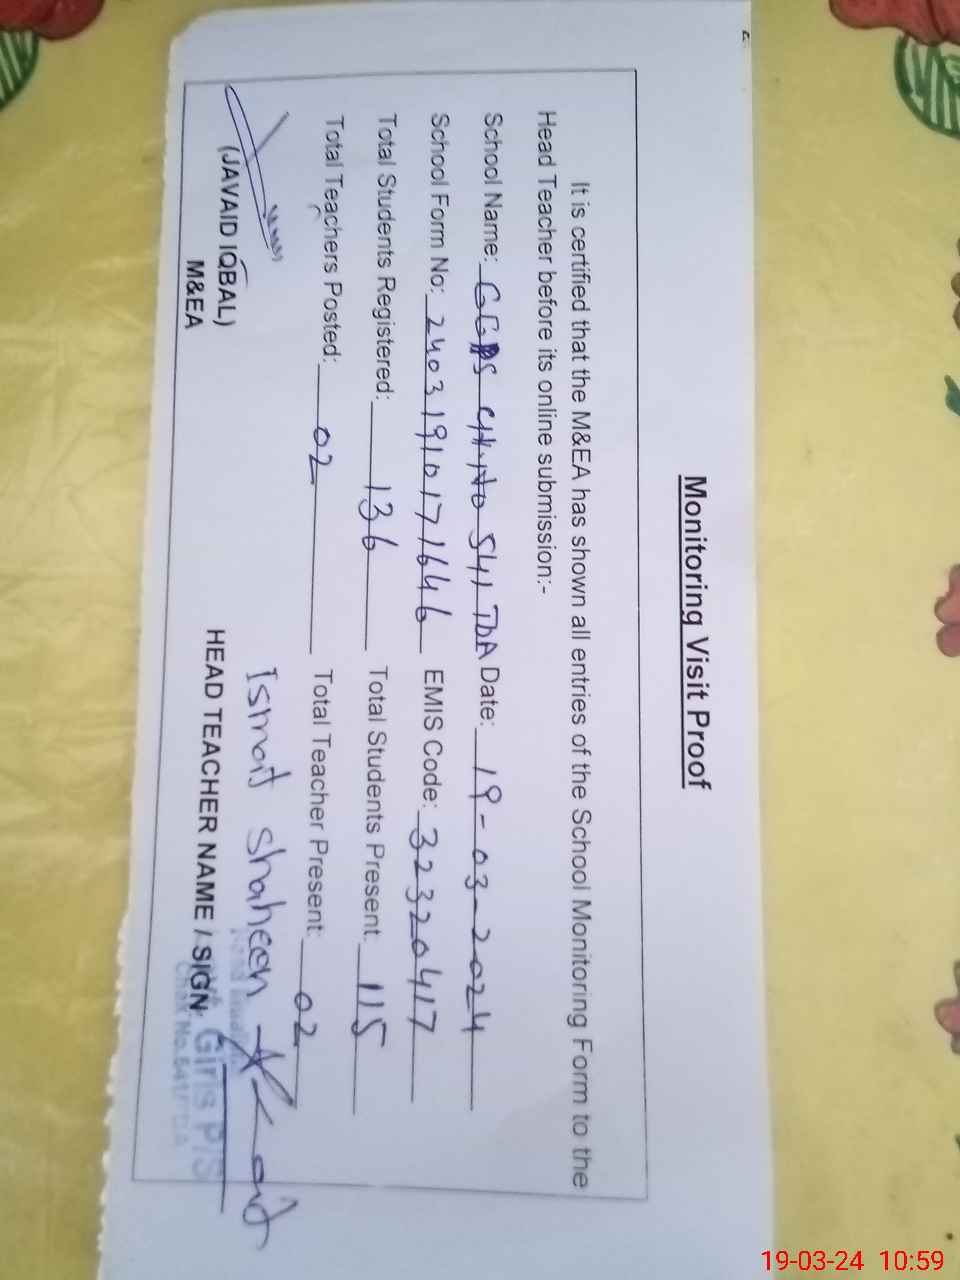 Monitoring Visit Proof
It is certified that the M&EA has shown all entries of the School Monitoring Form to the
Head Teacher before its online submission:-
School Name: GGPS CH.NO 541 TDA Date: 19-03-2024
School Form No: 24031910171646 EMIS Code: 32320417
Total Students Registered: 136 Total Students Present: 115
Total Teachers Posted: 02 Total Teacher Present: 02
Ismat Shaheen
(JAVAID IQBAL)
M&EA
HEAD TEACHER NAME / SIGN
Girls P/S
Chak No.541/TDA
19-03-24 10:59